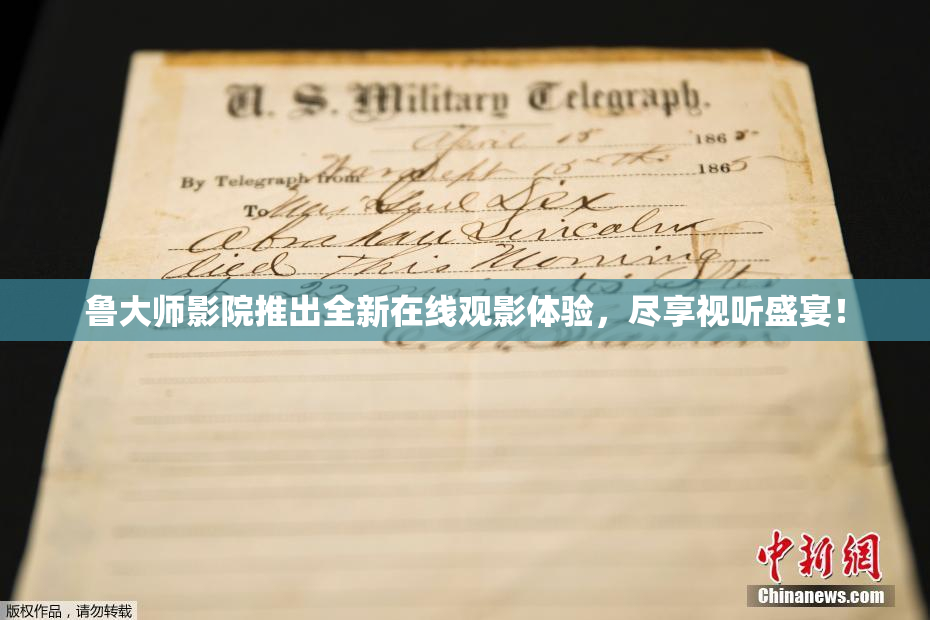 U. S. Military Telegraph.
April 15 1865
By Telegraph from War Dept 15th 1865
To Maj Genl Dix
Abraham Lincoln
died This Morning
at 22 minutes after
鲁大师影院推出全新在线观影体验，尽享视听盛宴！
E. M. Stanton
中新網
Chinanews.com
版权作品，请勿转载